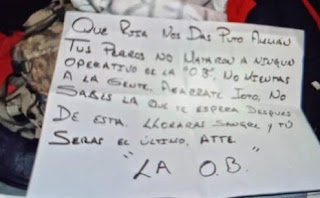 QUE RISA NOS DAS PUTO JULIAN
TUS PERROS NO MATARON A NINGUN
OPERATIVO DE LA "O.B", NO MIENTAS
A LA GENTE. AGARRATE JOTO, NO
SABES LA QUE TE ESPERA DESPUES
DE ESTA. LLORARAS SANGRE Y TÚ
SERAS EL ÚLTIMO, ATTE.
"LA O.B."